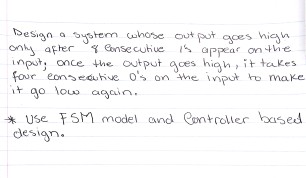 Design a system whose output goes high
only after 8 Consecutive 1's appear on the
input, once the output goes high, it takes
four consecutive 0's on the input to make
it go low again.
* Use FSM model and Controller based
design.